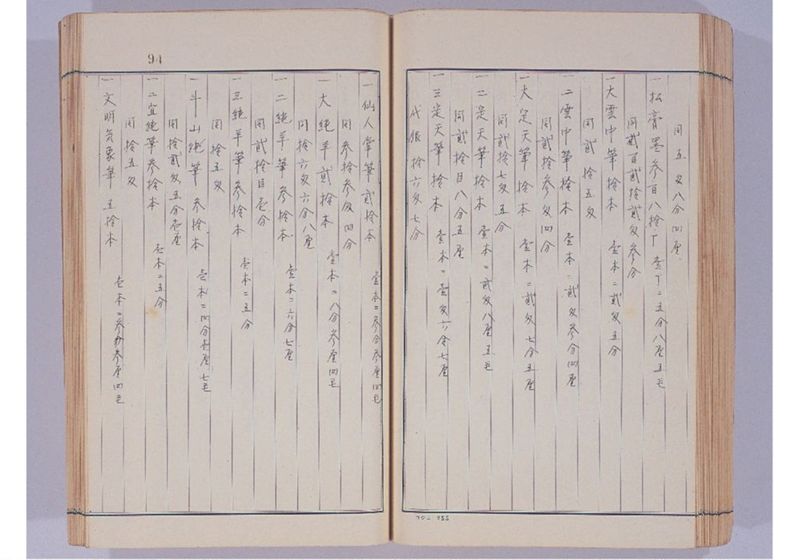 同五匁八分四厘
一松膏墨参百八拾丁 壹丁ニ五分八厘五毛
同貳百貳拾貳匁参分
一大雲中筆拾本 壹本ニ貳匁五分
同貳拾五匁
一二雲中筆拾本 壹本ニ貳匁参分四厘
同貳拾参匁四分
一大定天筆拾本 壹本ニ貳匁七分五厘
同貳拾七匁五分
一二定天筆拾本 壹本ニ貳匁八厘五毛
同貳拾目八分五厘
一三定天筆拾本 壹本ニ壹匁六分七厘
代銀拾六匁七分
94
一仙人掌筆貳拾本 壹本ニ
同参拾参匁四分
一大純羊貳拾本 壹本ニ八分参厘四毛
同拾六匁六分八厘
一二純羊筆参拾本 壹本ニ六分七厘
同貳拾目壱分
一三純羊筆参拾本 壹本ニ五分
同拾五匁
一斗山純筆参拾本 壹本ニ四分 厘七毛
同拾貳匁五分壱厘
一二宜純筆参拾本 壹本ニ五分
同拾五匁
一文明気象筆五拾本 壹本ニ 参厘四毛